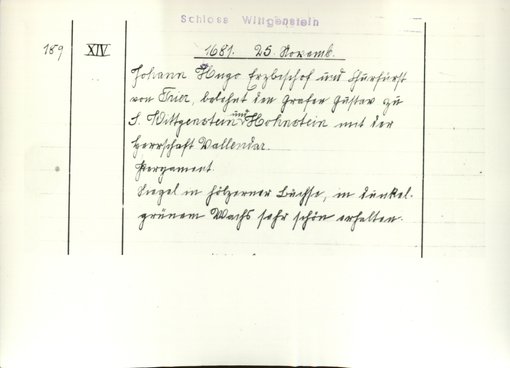 Schloss Wittgenstein
189 XIV 1681. 25. Novemb.
Johann Hugo Erzbischof und Churfürst
von Trier, belehnt den Grafen Gustav zu
S. Wittgenstein und Hohnstein mit der
Herrschaft Vallendar.
Pergament.
Siegel in hölzerner Büchse, in dunkel-
grünem Wachs sehr schön erhalten.